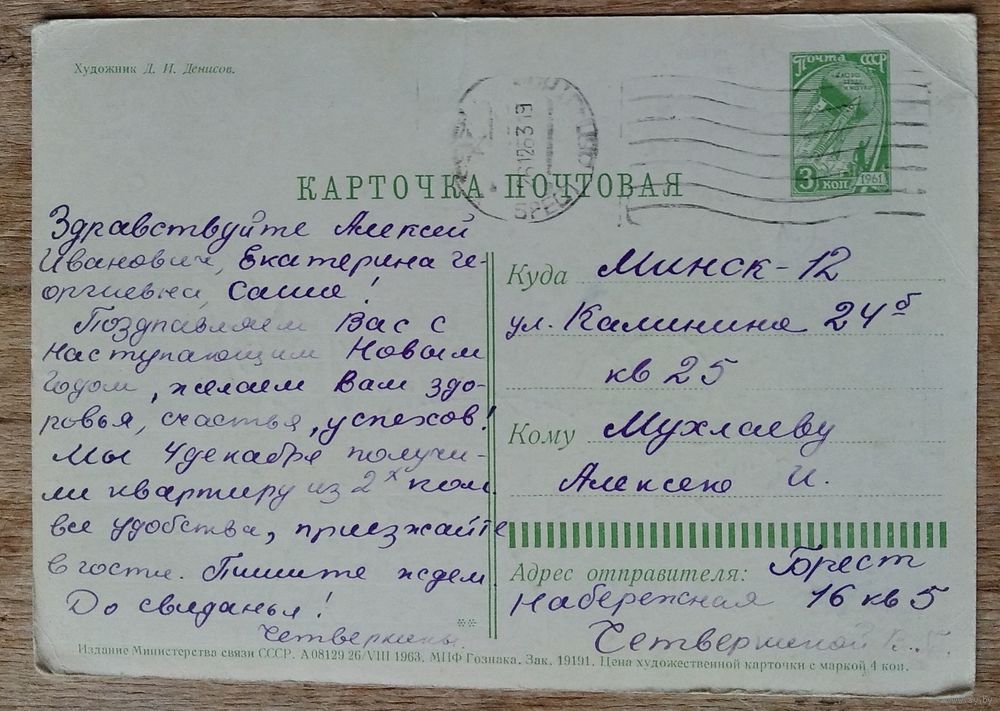 Художник Д. И. Денисов.
Почта СССР
3 коп 1961
261263 19
БРЕСТ
КАРТОЧКА ПОЧТОВАЯ
Здравствуйте Алексей
Иванович, Екатерина Ге-
оргиевна, Саша!
Поздравляем Вас с
наступающим Новым
Годом, желаем Вам здо-
ровья, счастья, успехов!
Мы 4 декабря получи-
ли квартиру из 2х ком.
все удобства, приезжайте
в гости. Пишите ждем.
До свиданья!
Четверкины.
Куда Минск-12
ул. Калинина 24б
кв 25
Кому Мухлаеву
Алексею И.
Адрес отправителя: Брест
Набережная 16 кв 5
**
Издание Министерства связи СССР. А 08129 26/VIII 1963. МПФ Гознака. Зак. 19191. Цена художественной карточки с маркой 4 коп.